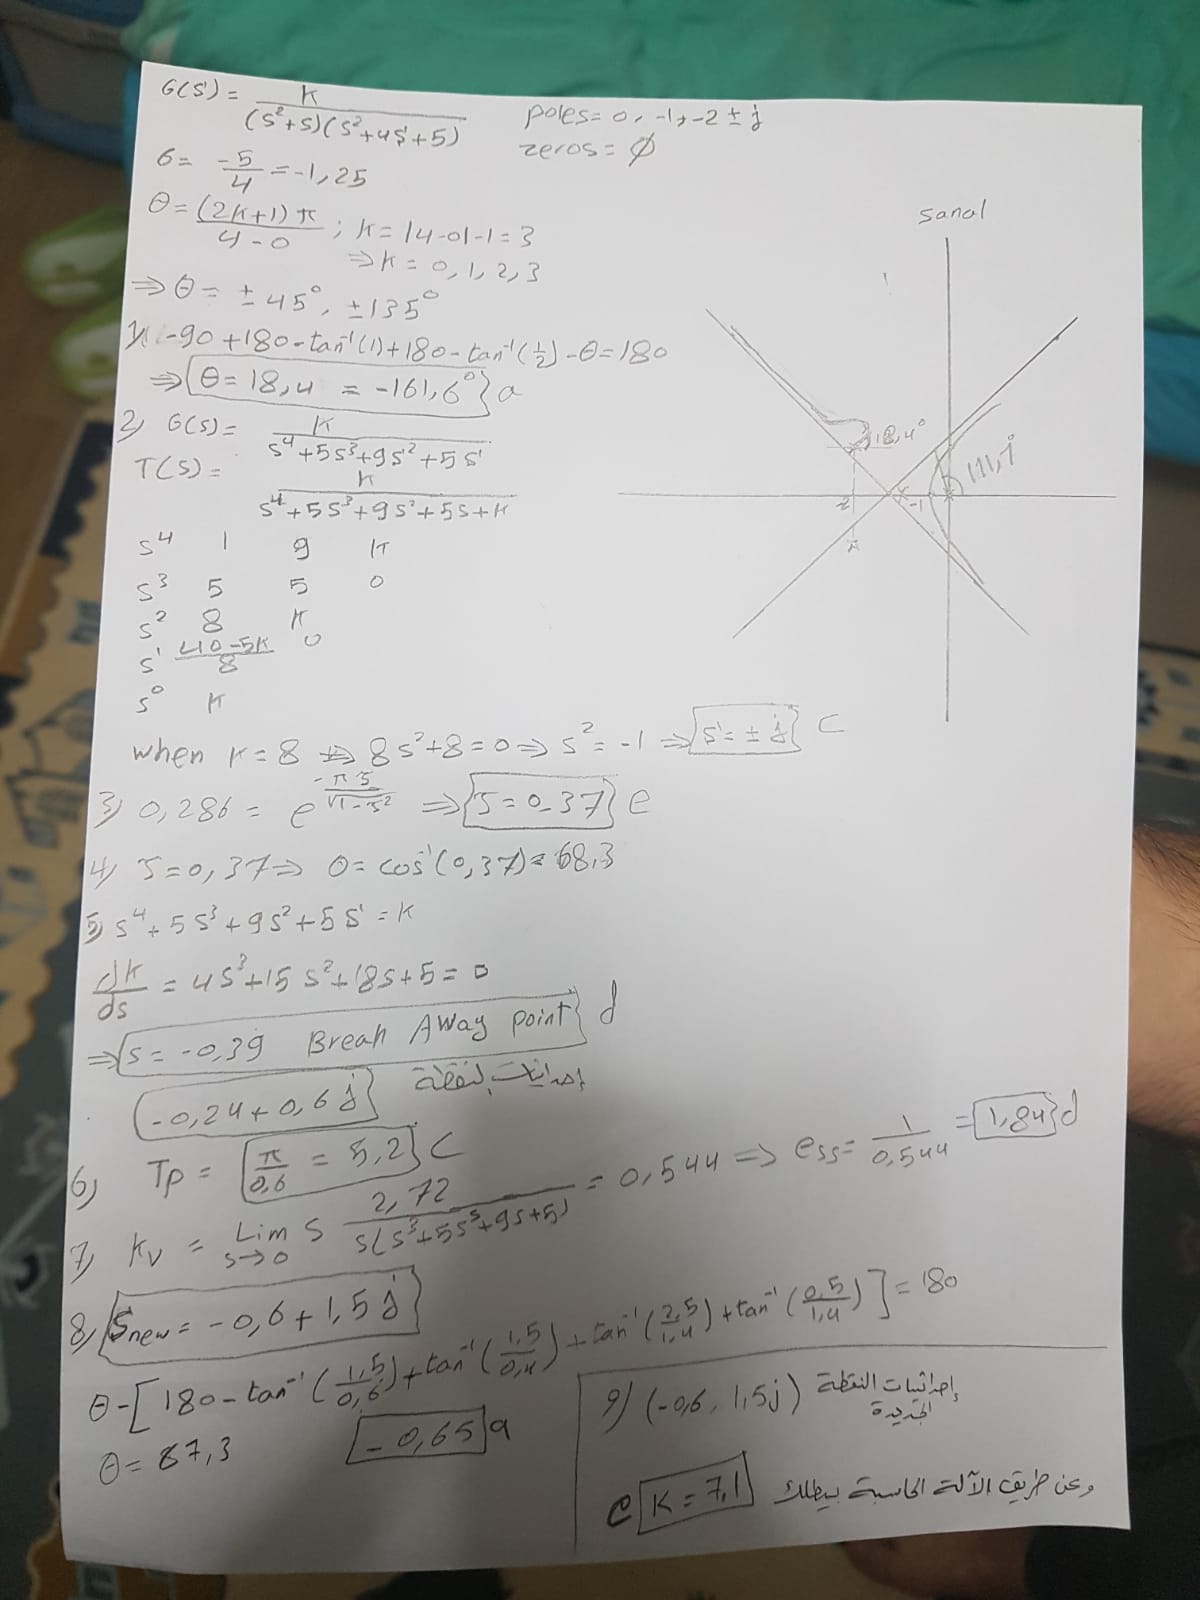 G(s) = K / (s²+s)(s²+4s+5)
poles = 0, -1, -2 ± j
zeros = ∅
σ = -5/4 = -1,25
θ = (2K+1)π / 4-0 ; K = |4-0|-1 = 3
⇒ K = 0, 1, 2, 3
⇒ θ = ± 45°, ± 135°
1) -90 + 180 - tan⁻¹(1) + 180 - tan⁻¹(1/2) - θ = 180
⇒ θ = 18,4 = -161,6° a
2) G(s) = K / s⁴+5s³+9s²+5s
T(s) = K / s⁴+5s³+9s²+5s+K
s⁴ 1 9 K
s³ 5 5 0
s² 8 K
s¹ 40-5K / 8 0
s⁰ K
when K = 8 ⇒ 8s²+8 = 0 ⇒ s² = -1 ⇒ s = ± j C
3) 0,286 = e^(-πζ/√1-ζ²) ⇒ ζ = 0,37 e
4) ζ = 0,37 ⇒ θ = cos⁻¹(0,37) = 68,3
5) s⁴+5s³+9s²+5s = K
dK/ds = 4s³+15s²+18s+5 = 0
⇒ s = -0,39 Break Away point d
-0,24 + 0,6 j إحداثيات النقطة
6) Tp = π/0,6 = 5,2 C
7) Kv = Lim s→0 s 2,72 / s(s³+5s²+9s+5) = 0,544 ⇒ ess = 1/0,544 = 1,84 d
8) Snew = -0,6 + 1,5 j
θ - [180 - tan⁻¹(1,5/0,6) + tan⁻¹(1,5/0,4) + tan⁻¹(2,5/1,4) + tan⁻¹(0,5/1,4)] = 180
θ = 87,3
-0,65 a
9) (-0,6, 1,5j) إحداثيات النقطة
الجديدة
وعن طريق الآلة الحاسبة بيطلك K = 7,1 e
sanal
18,4°
111,7°
-2
-1